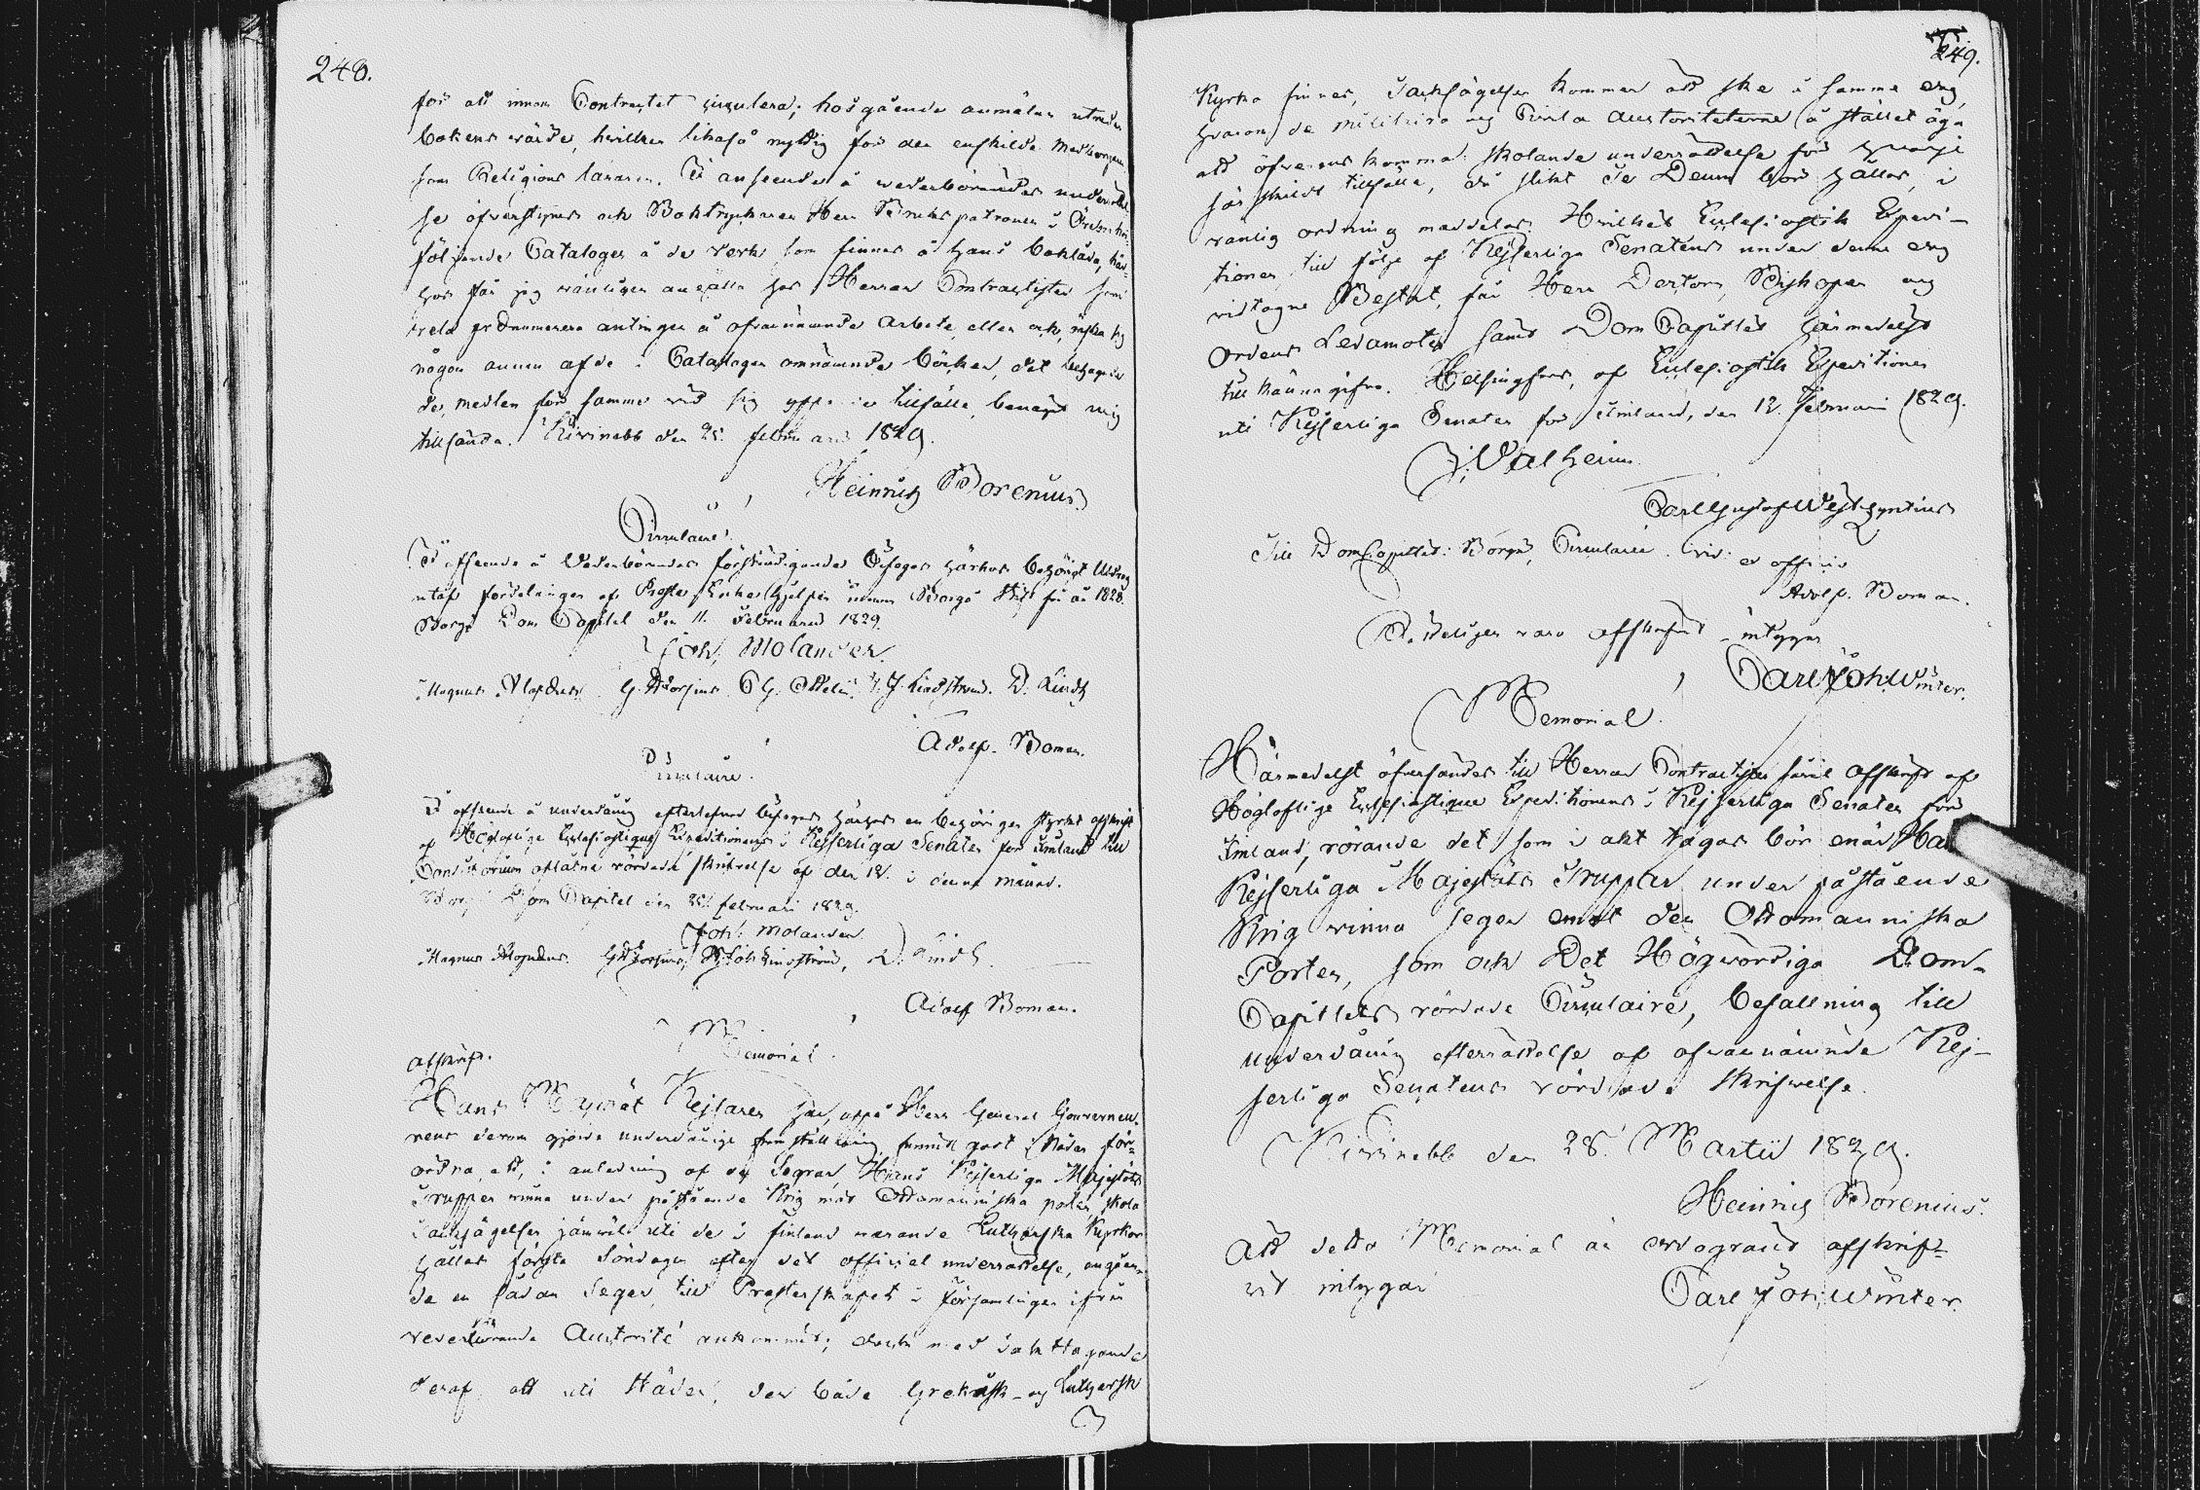 248.
för att innom Contractet circulera; hosgående anmälan utreder
bokens värde, hvilken likaså nyttig för den enskilde Medborgaren
som Religions läraren. Till anseende å vederbörandes
se öfverstyres och Boktryckaren Herr Bruks patronen
följande Cataloger å de verk som finnas å hans boklåda,
hos får jag vänligen anhålla hos Herrar Contractister som
vela prenumerera antingen å ofvannämnde arbete eller och
någon annan af de i Catalogen omnämnde böcker, det
de, medlen för samma vid sig yppande tillfälle, benäget mig
tillsända. Kivinebb den 25. februari 1829.
Heinrich Borenius
Circulaire.
I afseende å Vederbörandes förständigande bifogas härhos behörigt Utdrag
utaf fördelningen af Prestes Enke hjelpen innom Borgå Stift för år 1828.
Borgå Dom Capitel den 11. Februarii 1829.
Joh. Molander.
Magnus Alopæus. G. Borgius. C. G. J. Lindström. D. Lindh
Adolf. Boman.
Circulaire.
I afseende å underdånig efterlefnad bifogas härhos en behörigen styrkt afskrift
af Höglofliga Ecklesiastique Expeditionens i Kejserliga Senaten för Finland till
Consistorium aflåtne vördade skrifvelse af den 12. i denne månad.
Borgå Dom Capitel den 25. februari 1829.
Joh: Molander.
Magnus Alopæus. Joh Lindström, D. Lindh.
Adolf Boman.
Memorial.
Afskrift.
Hans Majestät Kejsaren har, uppå Herr General Gouverneu-
rens derom gjorde underdånige framställning funnit godt i Nåder för-
ordna, att, i anledning af de Segrar, Hans Kejserliga Majestäts
Trupper vinna under påstående Krig mot Ottomanniska porten, skola
Tacksägelser jämväl uti de i Finland varande Lutherska Kyrkor
hållas första Söndagen efter det officiel underrättelse, angåen-
de en sådan Seger, till Presterskapet i Församlingen ifrån
vederbörande Auctorité ankommit; dock med iakttagande
deraf, att uti Städer, der både Grekisk- och Luthersk
249.
Kyrka finnes, Tacksägelsen kommer att ske å samma dag,
hvarom de militaire och Civila auctoriteterne å stället äga
att öfverens komma: skolande underrättelse för hvarje
särskildt tillfälle, då slikt Te Deum bör hållas, i
vanlig ordning meddelas. Hvilket Ecclesiastik Expedi-
tionen, till följe af Kejserliga Senatens under denne dag
vidtagne Beslut, får Herr Doctorn, Biskopen och
Ordens Ledamoten samt Dom Capitlet härmedelst
till känna gifva. Helsingfors, af Ecclesiastik Expeditionen
uti Kejserliga Senaten för Finland, den 12. februari 1829.
J. Walheim
Carl Gustaf Westzynthius
Till DomCapitlet i Borgå, Circulaire. Vid: ex officio
Adolf. Boman.
Riktigen vara afskrifvit intygar
Carl Joh. Winter.
Memorial.
Härmedelst öfversändes till Herrar Contractister såväl afskrift af
Högloflige Ecclesiastique Expeditionens i Kejserliga Senaten för
Finland, rörande det som i akt tagas bör enär Hans
Kejserliga Majestäts Trupper under påstående
Krig vinna seger emot den Ottomanniska
Porten, som och Det Högvördiga Dom-
Capitlets vördade Circulaire, befallning till
underdånig efterrättelse af ofvannämnde Kej-
serliga Senatens vördade skrifvelse.
Kivinebb den 28. Martii 1829.
Heinrich Borenius.
Att detta Memorial är ordagrant afskrif-
vit intygar
Carl Joh: Winter.